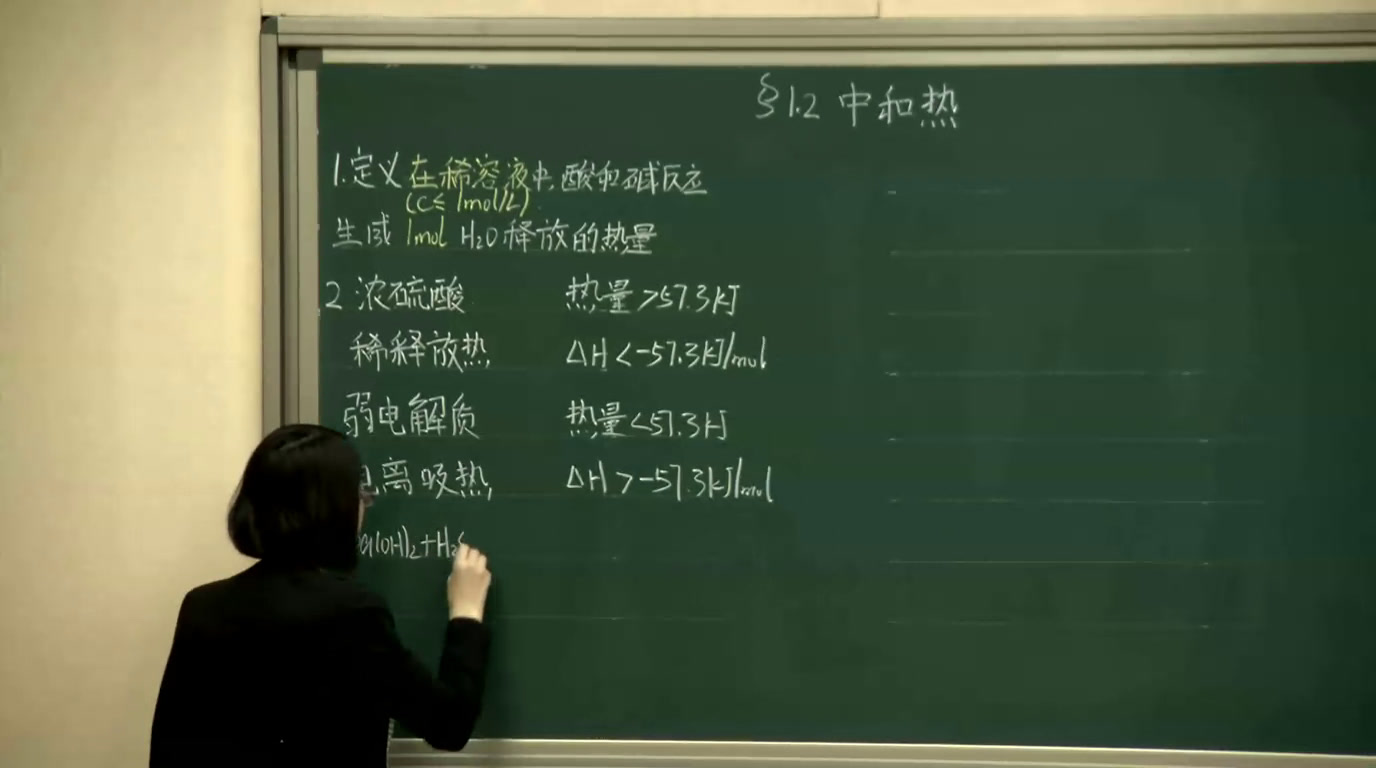 §1.2 中和热
1.定义 在稀溶液中,酸和碱反应
(C≤1mol/L)
生成 1mol H₂O 释放的热量
2 浓硫酸 热量>57.3kJ
稀释放热, ΔH<-57.3kJ/mol
弱电解质 热量<57.3kJ
离吸热, ΔH>-57.3kJ/mol
a(OH)₂+H₂S